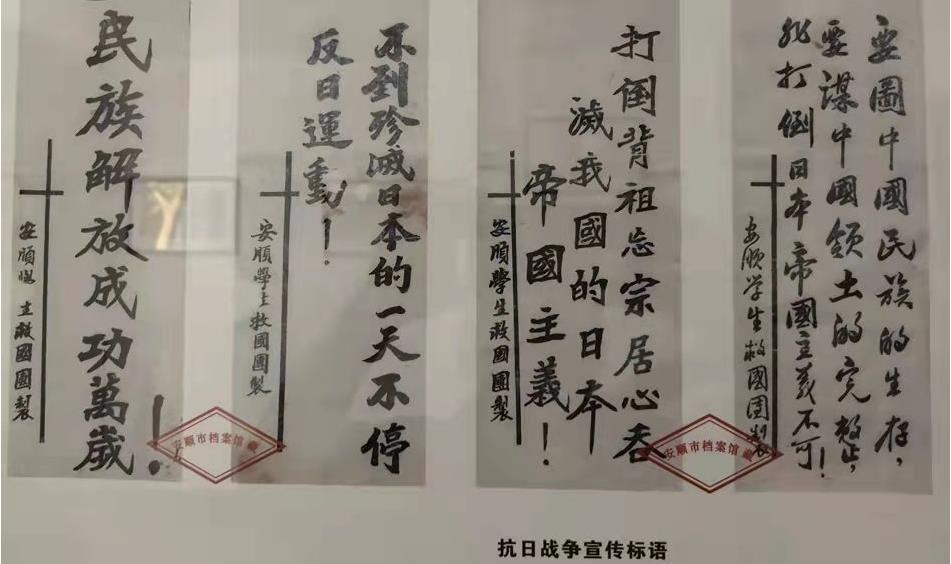 要圖中國民族的生存，
要謀中國領土的完整，
非打倒日本帝國主義不可！
安順学生救國團製
打倒背祖忘宗居心吞
滅我國的日本
帝國主義！
安順學生救國團製
不到殄滅日本的一天不停
反日運動！
安順學生救國團製
民族解放成功萬歲！
安順 生救國團製
安顺市档案馆 藏
安顺市档案馆 藏
抗日战争宣传标语